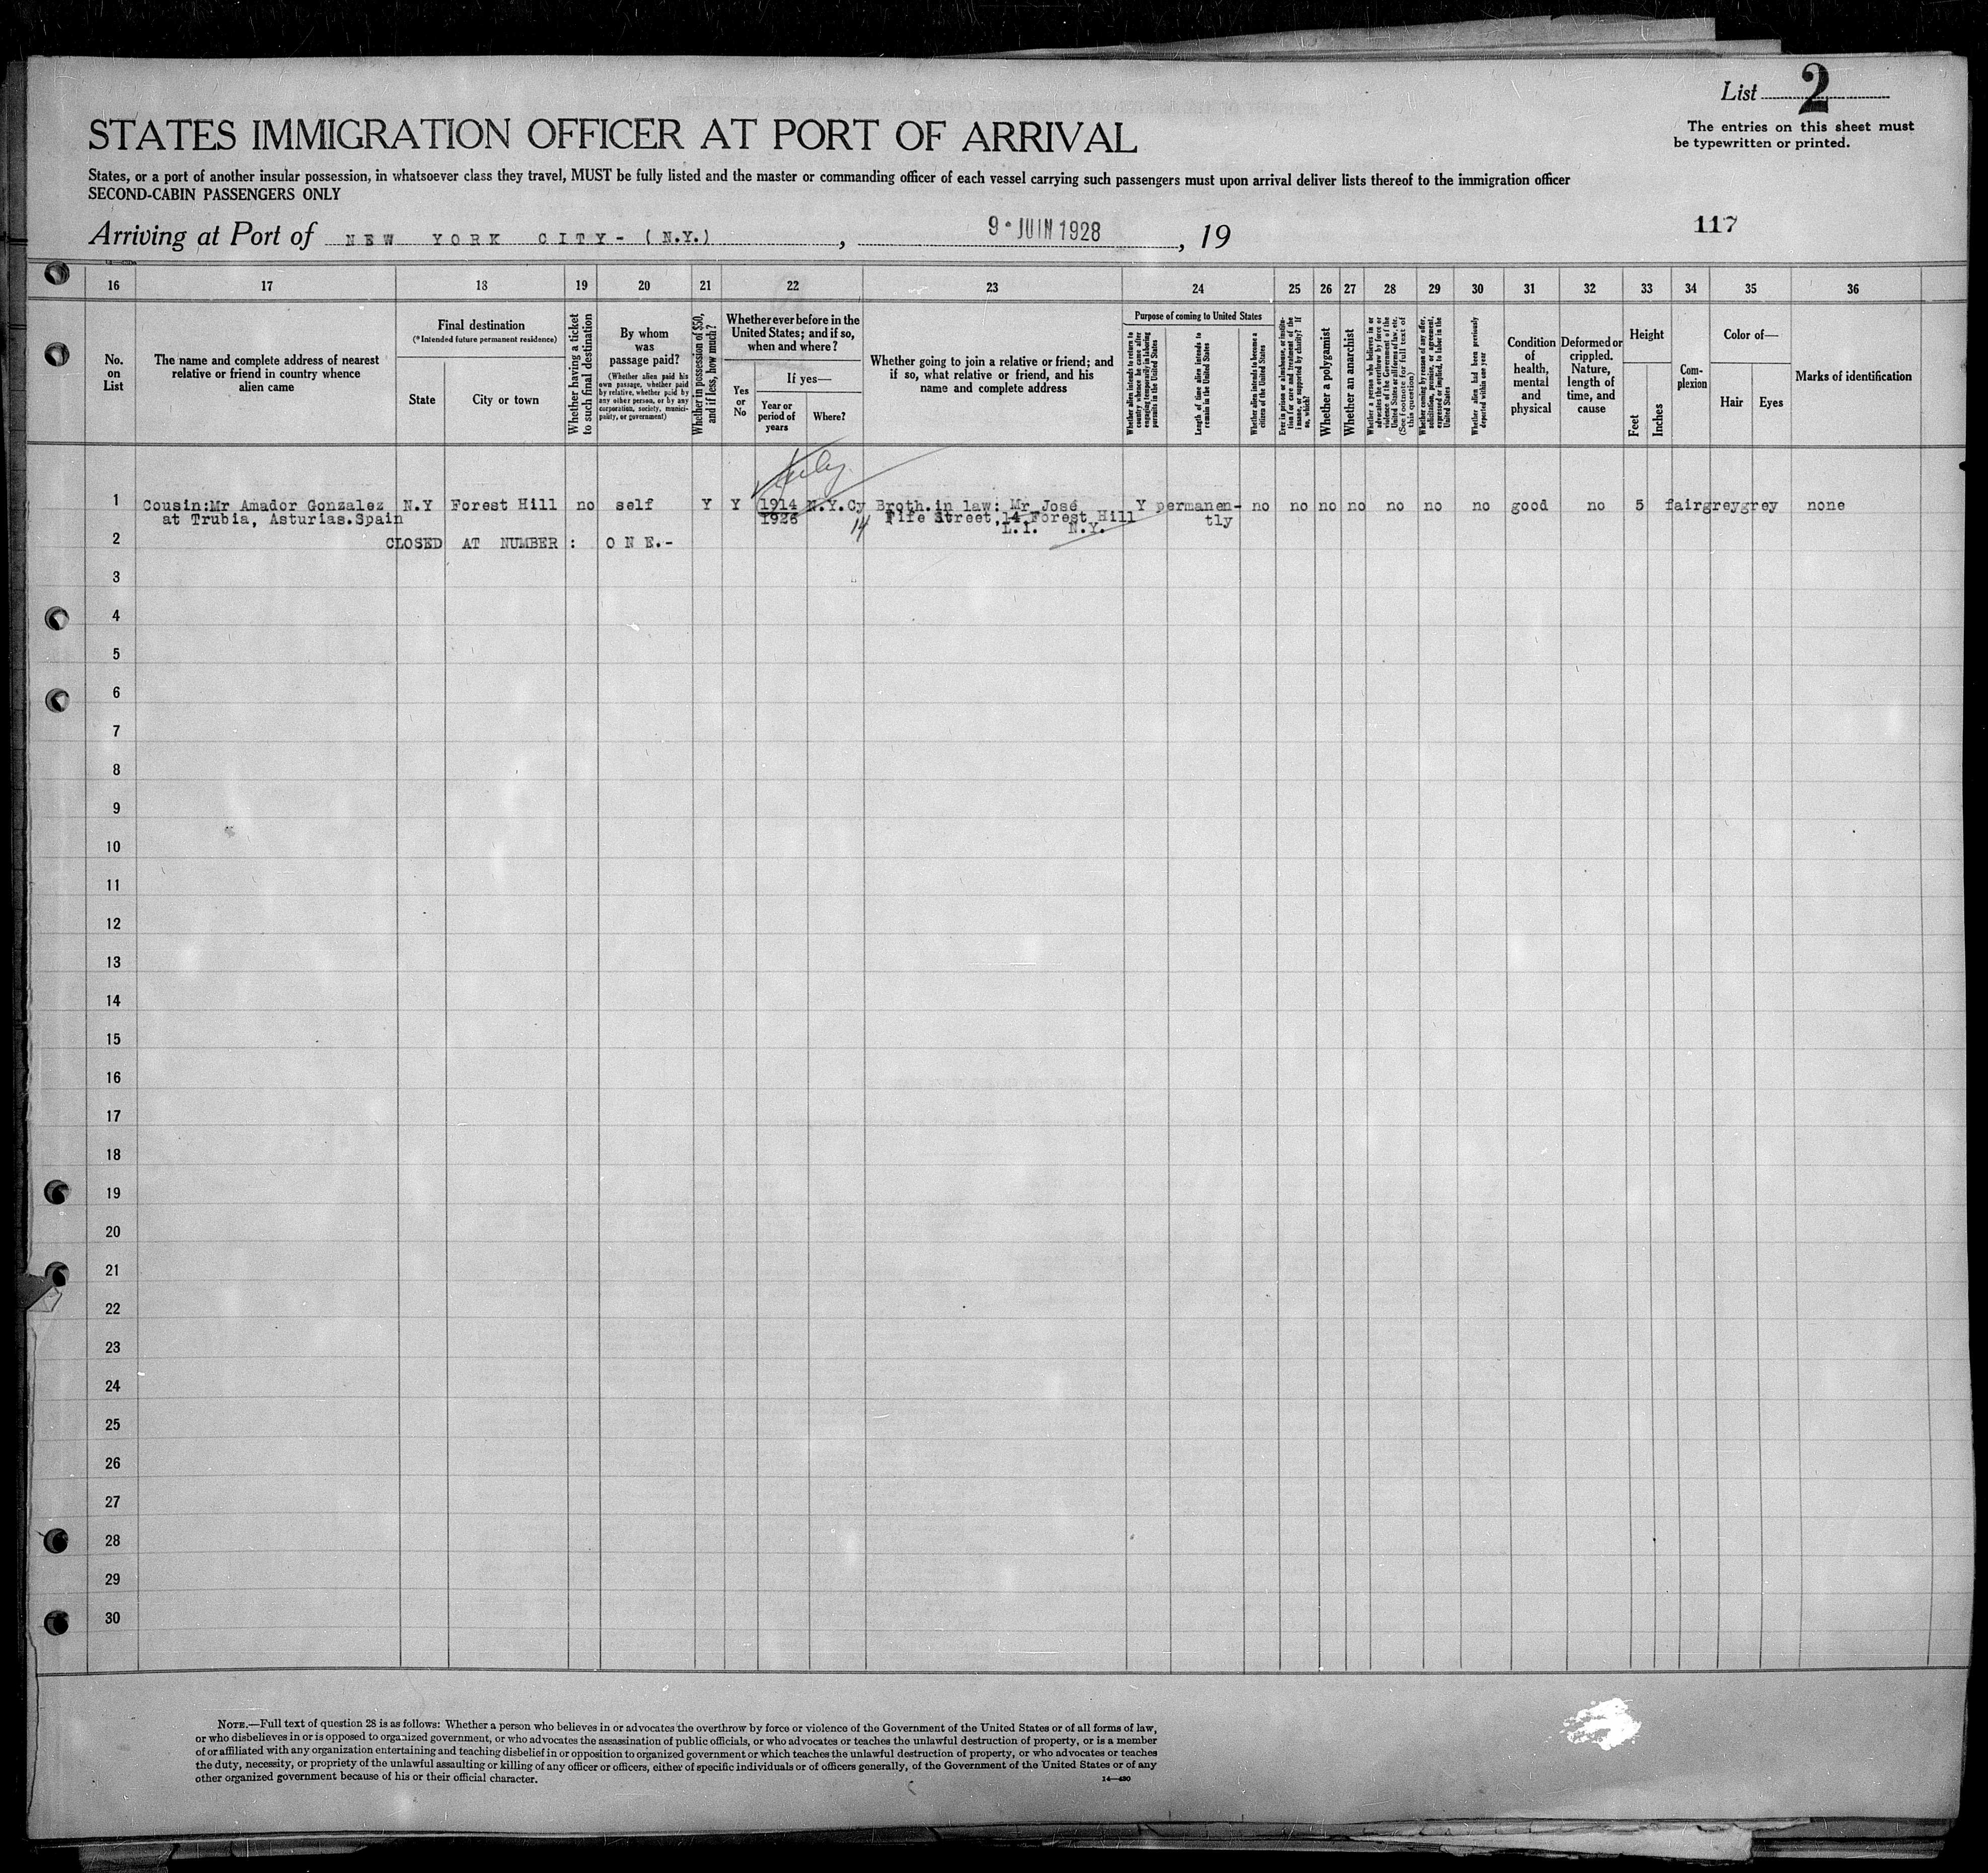 List 2
The entries on this sheet must
be typewritten or printed.
STATES IMMIGRATION OFFICER AT PORT OF ARRIVAL
States, or a port of another insular possession, in whatsoever class they travel, MUST be fully listed and the master or commanding officer of each vessel carrying such passengers must upon arrival deliver lists thereof to the immigration officer
SECOND-CABIN PASSENGERS ONLY
Arriving at Port of NEW YORK CITY- (N.Y.), 9 · JUIN 1928, 19
117
16 17 18 19 20 21 22 23 24 25 26 27 28 29 30 31 32 33 34 35 36
No.
on
List
The name and complete address of nearest
relative or friend in country whence
alien came
Final destination
(*Intended future permanent residence)
State
City or town
Whether having a ticket
to such final destination
By whom
was
passage paid?
(Whether alien paid his
own passage, whether paid
by relative, whether paid by
any other person, or by any
corporation, society, munici-
pality, or government)
Whether in possession of $50,
and if less, how much?
Whether ever before in the
United States; and if so,
when and where?
Yes
or
No
If yes—
Year or
period of
years
Where?
Whether going to join a relative or friend; and
if so, what relative or friend, and his
name and complete address
Purpose of coming to United States
Whether alien intends to return to
country whence he came after
engaging temporarily in laboring
pursuits in the United States
Length of time alien intends to
remain in the United States
Whether alien intends to become a
citizen of the United States
Ever in prison or almshouse, or institu-
tion for care and treatment of the
insane, or supported by charity? If
so, which?
Whether a polygamist
Whether an anarchist
Whether a person who believes in or
advocates the overthrow by force or
violence of the Government of the
United States or all forms of law, etc.
(See footnote for full text of
this question)
Whether coming by reason of any offer,
solicitation, promise, or agreement,
expressed or implied, to labor in the
United States
Whether alien had been previously
deported within one year
Condition
of
health,
mental
and
physical
Deformed or
crippled.
Nature,
length of
time, and
cause
Height
Feet
Inches
Com-
plexion
Color of—
Hair
Eyes
Marks of identification
1 Cousin:Mr Amador Gonzalez N.Y Forest Hill no self Y Y 1914 N.Y.Cy Broth.in law: Mr José Y permanen- no no no no no no no good no 5 fair grey grey none
at Trubia, Asturias.Spain 1926 14 Fife Street,14 Forest Hill tly
L.I. N.Y.
2 CLOSED AT NUMBER : O N E.-
3
4
5
6
7
8
9
10
11
12
13
14
15
16
17
18
19
20
21
22
23
24
25
26
27
28
29
30
NOTE.—Full text of question 28 is as follows: Whether a person who believes in or advocates the overthrow by force or violence of the Government of the United States or of all forms of law,
or who disbelieves in or is opposed to organized government, or who advocates the assassination of public officials, or who advocates or teaches the unlawful destruction of property, or is a member
of or affiliated with any organization entertaining and teaching disbelief in or opposition to organized government or which teaches the unlawful destruction of property, or who advocates or teaches
the duty, necessity, or propriety of the unlawful assaulting or killing of any officer or officers, either of specific individuals or of officers generally, of the Government of the United States or of any
other organized government because of his or their official character.
14—430